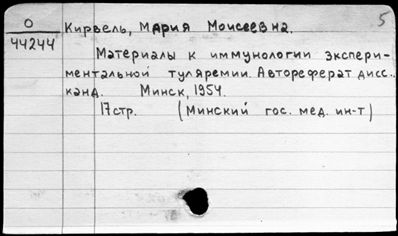 5
О
44244
Кирвель, Мария Моисеевна.
Материалы к иммунологии экспери-
ментальной туляремии. Автореферат дисс.
канд. Минск, 1954.
17 стр. (Минский гос. мед. ин-т)